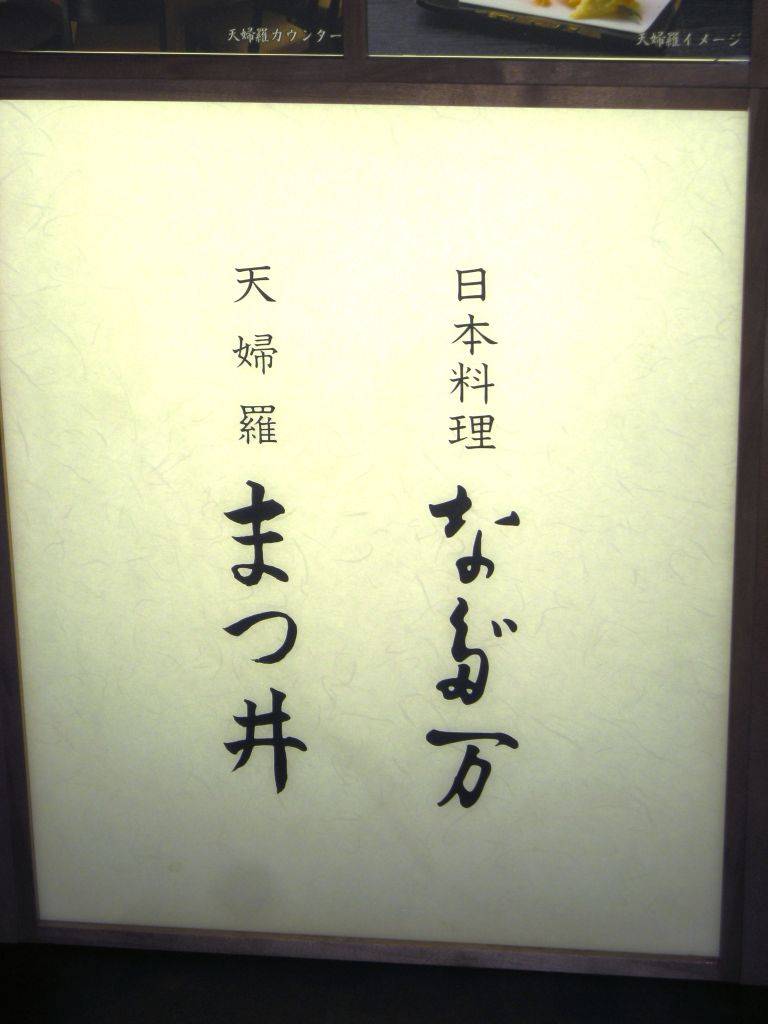 天婦羅カウンター
天婦羅イメージ
日本料理 なだ万
天婦羅 まつ井